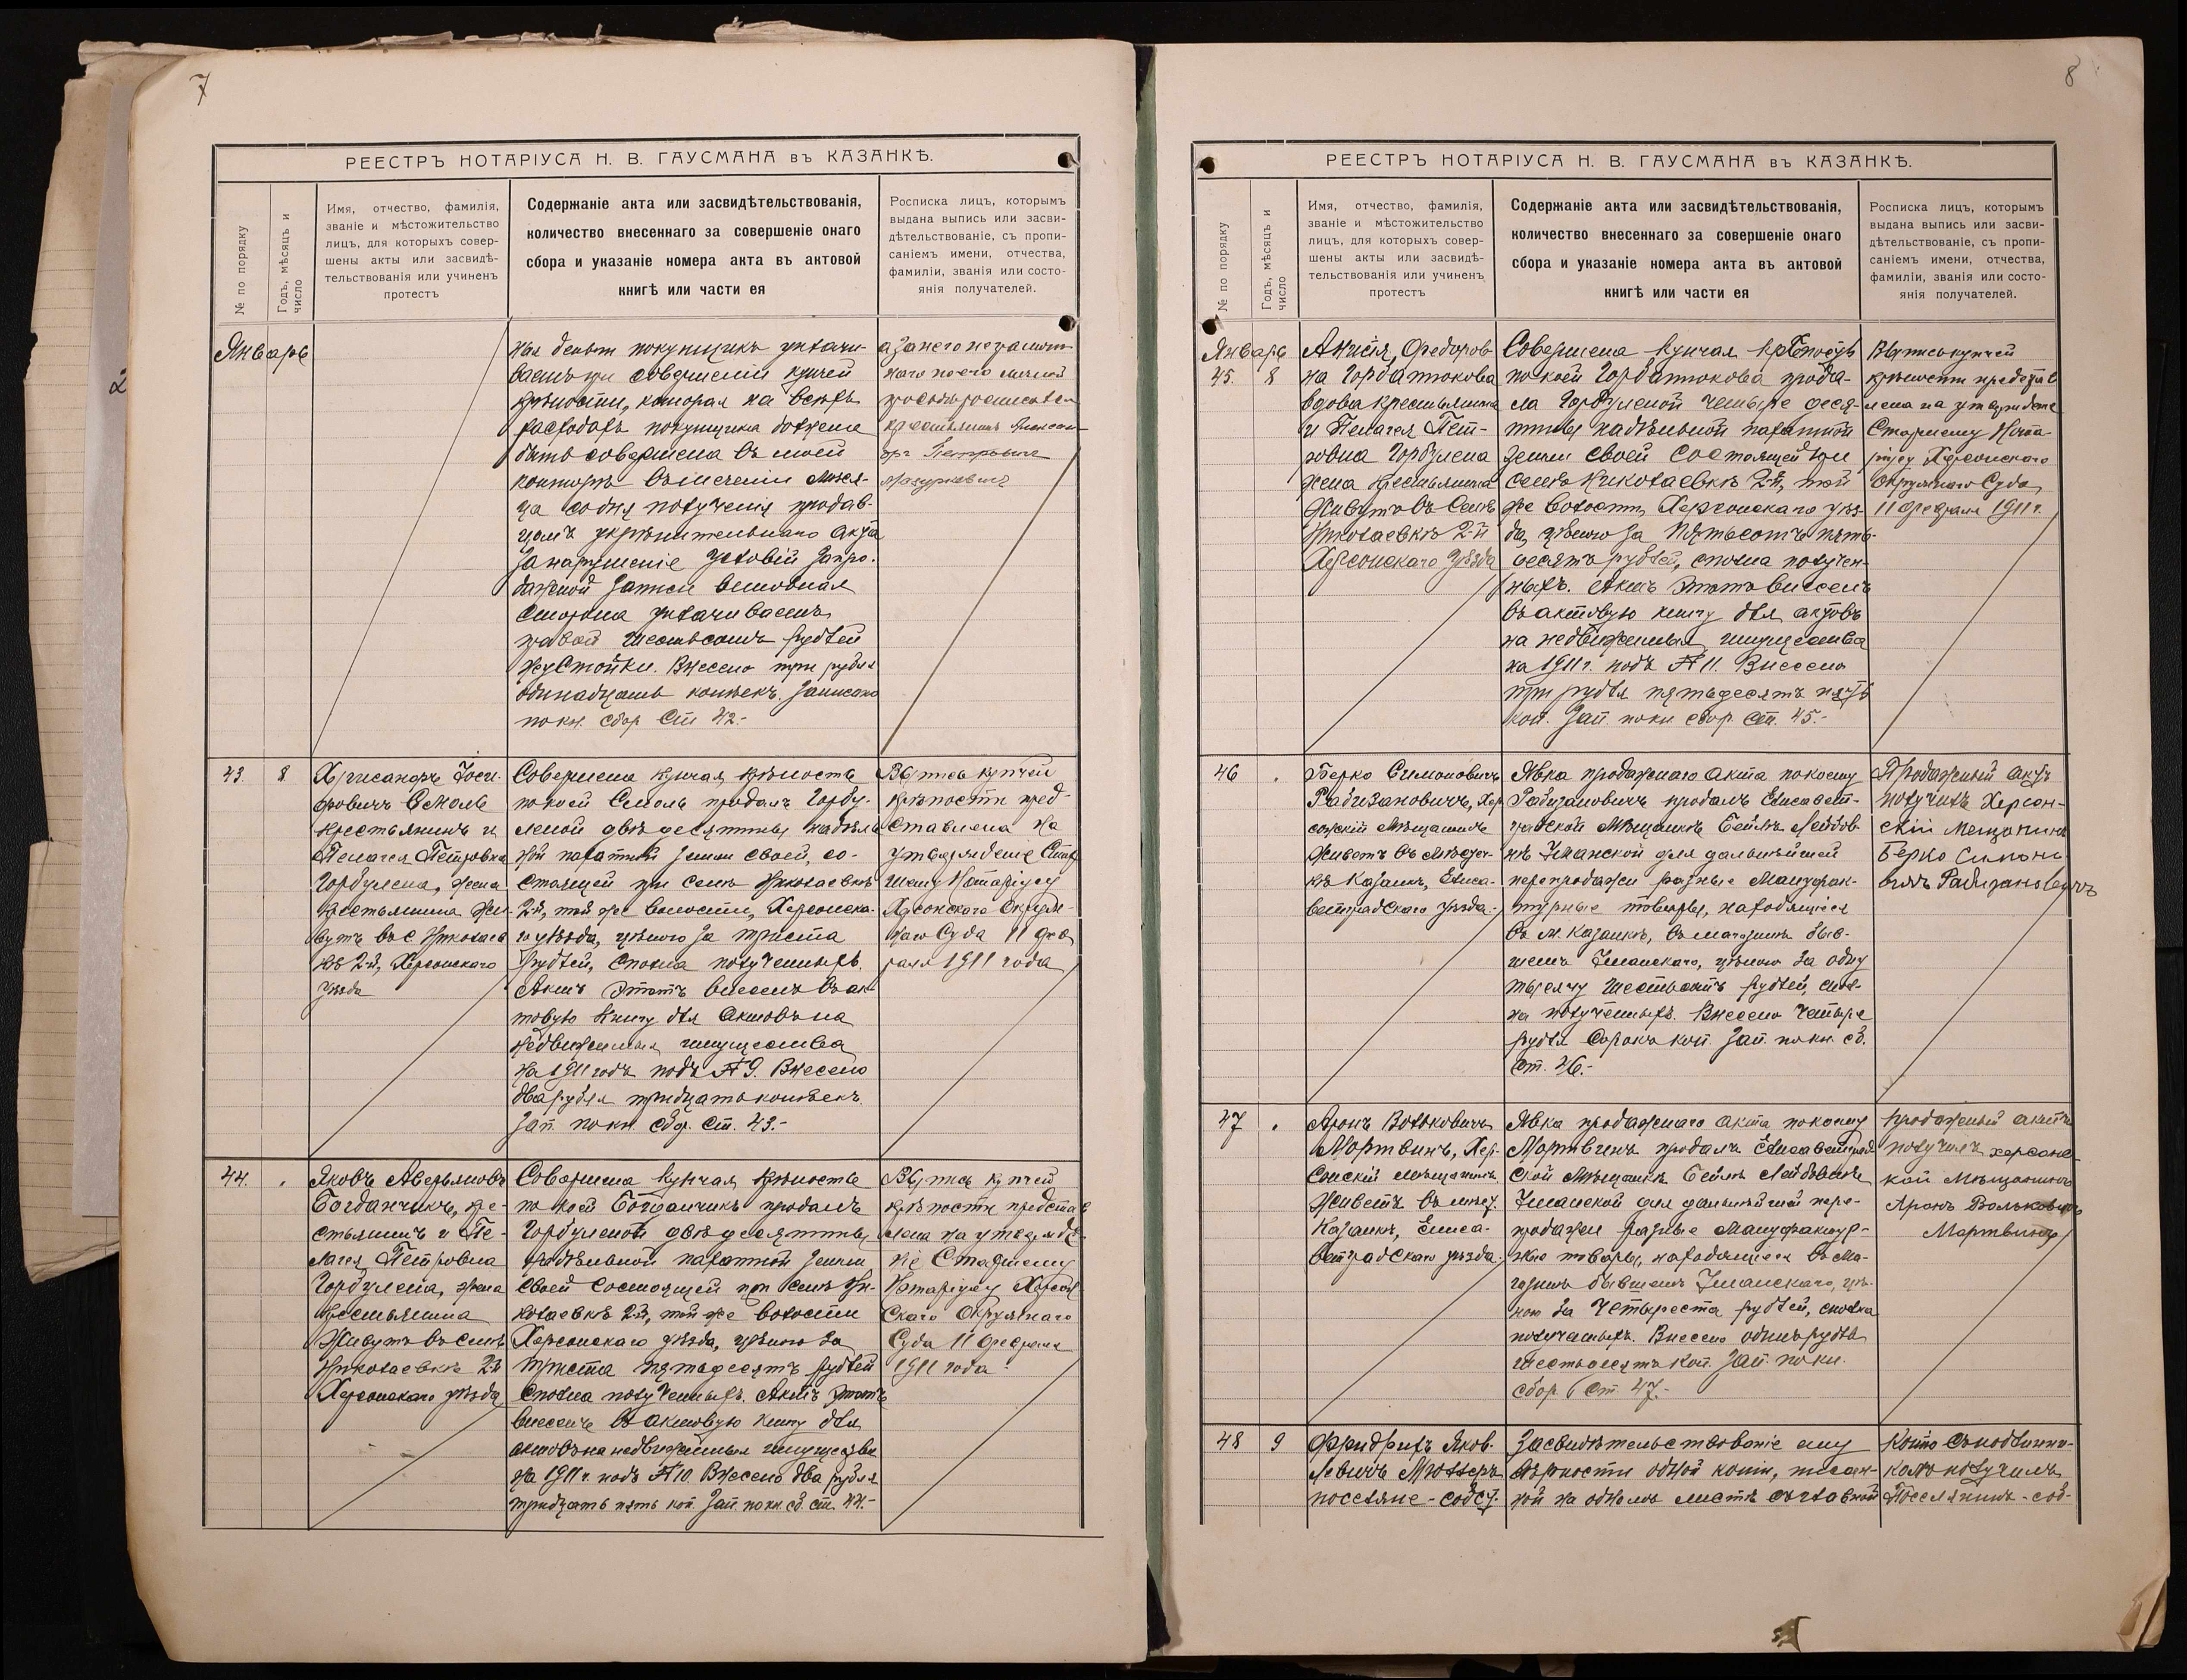 7
РЕЕСТРЪ НОТАРІУСА Н. В. ГАУСМАНА въ КАЗАНКѢ.
№ по порядку
Годъ, мѣсяцъ и число
Имя, отчество, фамилія,
званіе и мѣстожительство
лицъ, для которыхъ совер-
шены акты или засвидѣ-
тельствованія или учиненъ
протестъ
Содержаніе акта или засвидѣтельствованія,
количество внесеннаго за совершеніе онаго
сбора и указаніе номера акта въ актовой
книгѣ или части ея
Росписка лицъ, которымъ
выдана выпись или засви-
дѣтельствованіе, съ пропи-
саніемъ имени, отчества,
фамиліи, званія или состо-
янія получателей.
Январь
ныя деньги покупщикъ уплачи-
ваетъ при совершеніи купчей
крѣпости, которая на всѣхъ
расходахъ покупщика должна
быть совершена въ моей
конторѣ въ теченіи мѣся-
ца со дня полученія продав-
цомъ укрѣпительнаго акта
За нарушеніе условій запро-
дажной записи виновная
сторона уплачиваетъ
правой шестьсотъ рублей
неустойки. Внесено три рубля
одинадцать копѣекъ. Записано
по кн. сбор. Ст. 42.-
а за него неграмот-
наго по его личной
просьбѣ росписался
крестьянинъ Александръ
Петровичъ
Мазуркевичъ
43. 8
Хрисанфъ Іоси-
фовичъ Смоль
крестьянинъ и
Пелагея Петровна
Горбулена, жена
крестьянина жи-
вутъ въ с. Николаев-
кѣ 2-й, Херсонскаго
уѣзда
Совершена купчая крѣпость
по коей Смоль продалъ Горбу-
леной двѣ десятины надѣль-
ной пахатной земли своей, со-
стоящей при селѣ Николаевкѣ
2-й, той же волости, Херсонска-
го уѣзда, цѣною за триста
рублей, сполна полученныхъ.
Актъ этотъ внесенъ въ ак-
товую книгу для актовъ на
недвижимыя имущества
на 1911 годъ подъ № 9. Внесено
два рубля тридцать копѣекъ.
Зап. по кн. сбор. Ст. 43.-
Выпись купчей
крѣпости пред-
ставлена на
утвержденіе Стар-
шему Нотаріусу
Херсонскаго Окруж-
наго Суда 11 фев-
раля 1911 года
44. "
Яковъ Аверьяновъ
Богданчикъ, кре-
стьянинъ и Пе-
лагея Петровна
Горбулена, жена
крестьянина
Живутъ въ селѣ
Николаевкѣ 2-й
Херсонскаго уѣзда
Совершена купчая крѣпость
по коей Богданчикъ продалъ
Горбуленой двѣ десятины
надѣльной пахатной земли
своей состоящей при селѣ Ни-
колаевкѣ 2-й, той же волости
Херсонскаго уѣзда, цѣною за
триста пятьдесятъ рублей
сполна полученныхъ. Актъ этотъ
внесенъ въ актовую книгу для
актовъ на недвижимыя имущества
на 1911 г. подъ № 10. Внесено два рубля
тридцать пять коп. Зап. по кн. сб. ст. 44.-
Выпись купчей
крѣпости представ-
лена на утвержде-
ніе Старшему
Нотаріусу Херсон-
скаго Окружнаго
Суда 11 февраля
1911 года
8
РЕЕСТРЪ НОТАРІУСА Н. В. ГАУСМАНА въ КАЗАНКѢ.
№ по порядку
Годъ, мѣсяцъ и число
Имя, отчество, фамилія,
званіе и мѣстожительство
лицъ, для которыхъ совер-
шены акты или засвидѣ-
тельствованія или учиненъ
протестъ
Содержаніе акта или засвидѣтельствованія,
количество внесеннаго за совершеніе онаго
сбора и указаніе номера акта въ актовой
книгѣ или части ея
Росписка лицъ, которымъ
выдана выпись или засви-
дѣтельствованіе, съ пропи-
саніемъ имени, отчества,
фамиліи, званія или состо-
янія получателей.
Январь
45. 8
Анисія Федоров-
на Горбатюкова
вдова крестьянина
и Пелагея Пет-
ровна Горбулена
жена крестьянина
Живутъ въ Селѣ
Николаевкѣ 2-й
Херсонскаго Уѣзда
Совершена купчая крѣпость
по коей Горбатюкова прода-
ла Горбуленой четыре деся-
тины надѣльной пахатной
земли своей состоящей при
селѣ Николаевкѣ 2-й, той
же волости, Херсонскаго уѣз-
да, цѣною за пятьсотъ пять-
десятъ рублей, сполна получен-
ныхъ. Актъ этотъ внесенъ
въ актовую книгу для актовъ
на недвижимыя имущества
на 1911 г. подъ № 11. Внесено
три рубля пятьдесятъ пять
коп. Зап. по кн. сбор. Ст. 45.-
Выпись купчей
крѣпости представ-
лена на утвержденіе
Старшему Нота-
ріусу Херсонскаго
Окружнаго Суда
11 февраля 1911 г.
46 "
Берко Симоновичъ
Рабизановичъ, Хер-
сонскій мѣщанинъ
Живетъ въ мѣстеч-
кѣ Казанкѣ, Елиса-
ветградскаго уѣзда.-
Явка продажнаго акта по коему
Рабизановичъ продалъ Елисавет-
градской мѣщанкѣ Бейлѣ Лейбов-
нѣ Уманской для дальнѣйшей
перепродажи разные мануфак-
турные товары, находящіеся
въ м. Казанкѣ, въ магазинѣ быв-
шемъ Уманскаго, цѣною за одну
тысячу шестьсотъ рублей, спол-
на полученныхъ. Внесено четыре
рубля сорокъ коп. Зап. по кн. сб.
Ст. 46.-
Продажный актъ
получилъ Херсон-
скій мещанинъ
Берко Симоно-
вичъ Рабизановичъ
47 "
Аронъ Вольковичъ
Мортвинъ, Хер-
сонскій мѣщанинъ
Живетъ въ мѣст.
Казанкѣ, Елиса-
ветградскаго уѣзда.
Явка продажнаго акта по коему
Мортвинъ продалъ Елисаветград-
ской мѣщанкѣ Бейлѣ Лейбовнѣ
Уманской для дальнѣйшей пере-
продажи разные мануфактур-
ные товары, находящіеся въ ма-
газинѣ бывшемъ Уманскаго, цѣ-
ною за четыреста рублей, сполна
полученныхъ. Внесено одинъ рубль
шестьдесятъ коп. Зап. по кн.
сбор. Ст. 47.-
Продажный актъ
получилъ херсонс-
кой мѣщанинъ
Аронъ Вольковичъ
Мортвинъ
48 9
Фридрихъ Яков-
левичъ Мюллеръ
поселяне-собст.
Засвидѣтельствованіе ему
вѣрности одной копіи, писан-
ной на одномъ листѣ съ главной
Копію съ подлинни-
комъ получилъ
Поселянинъ-соб-